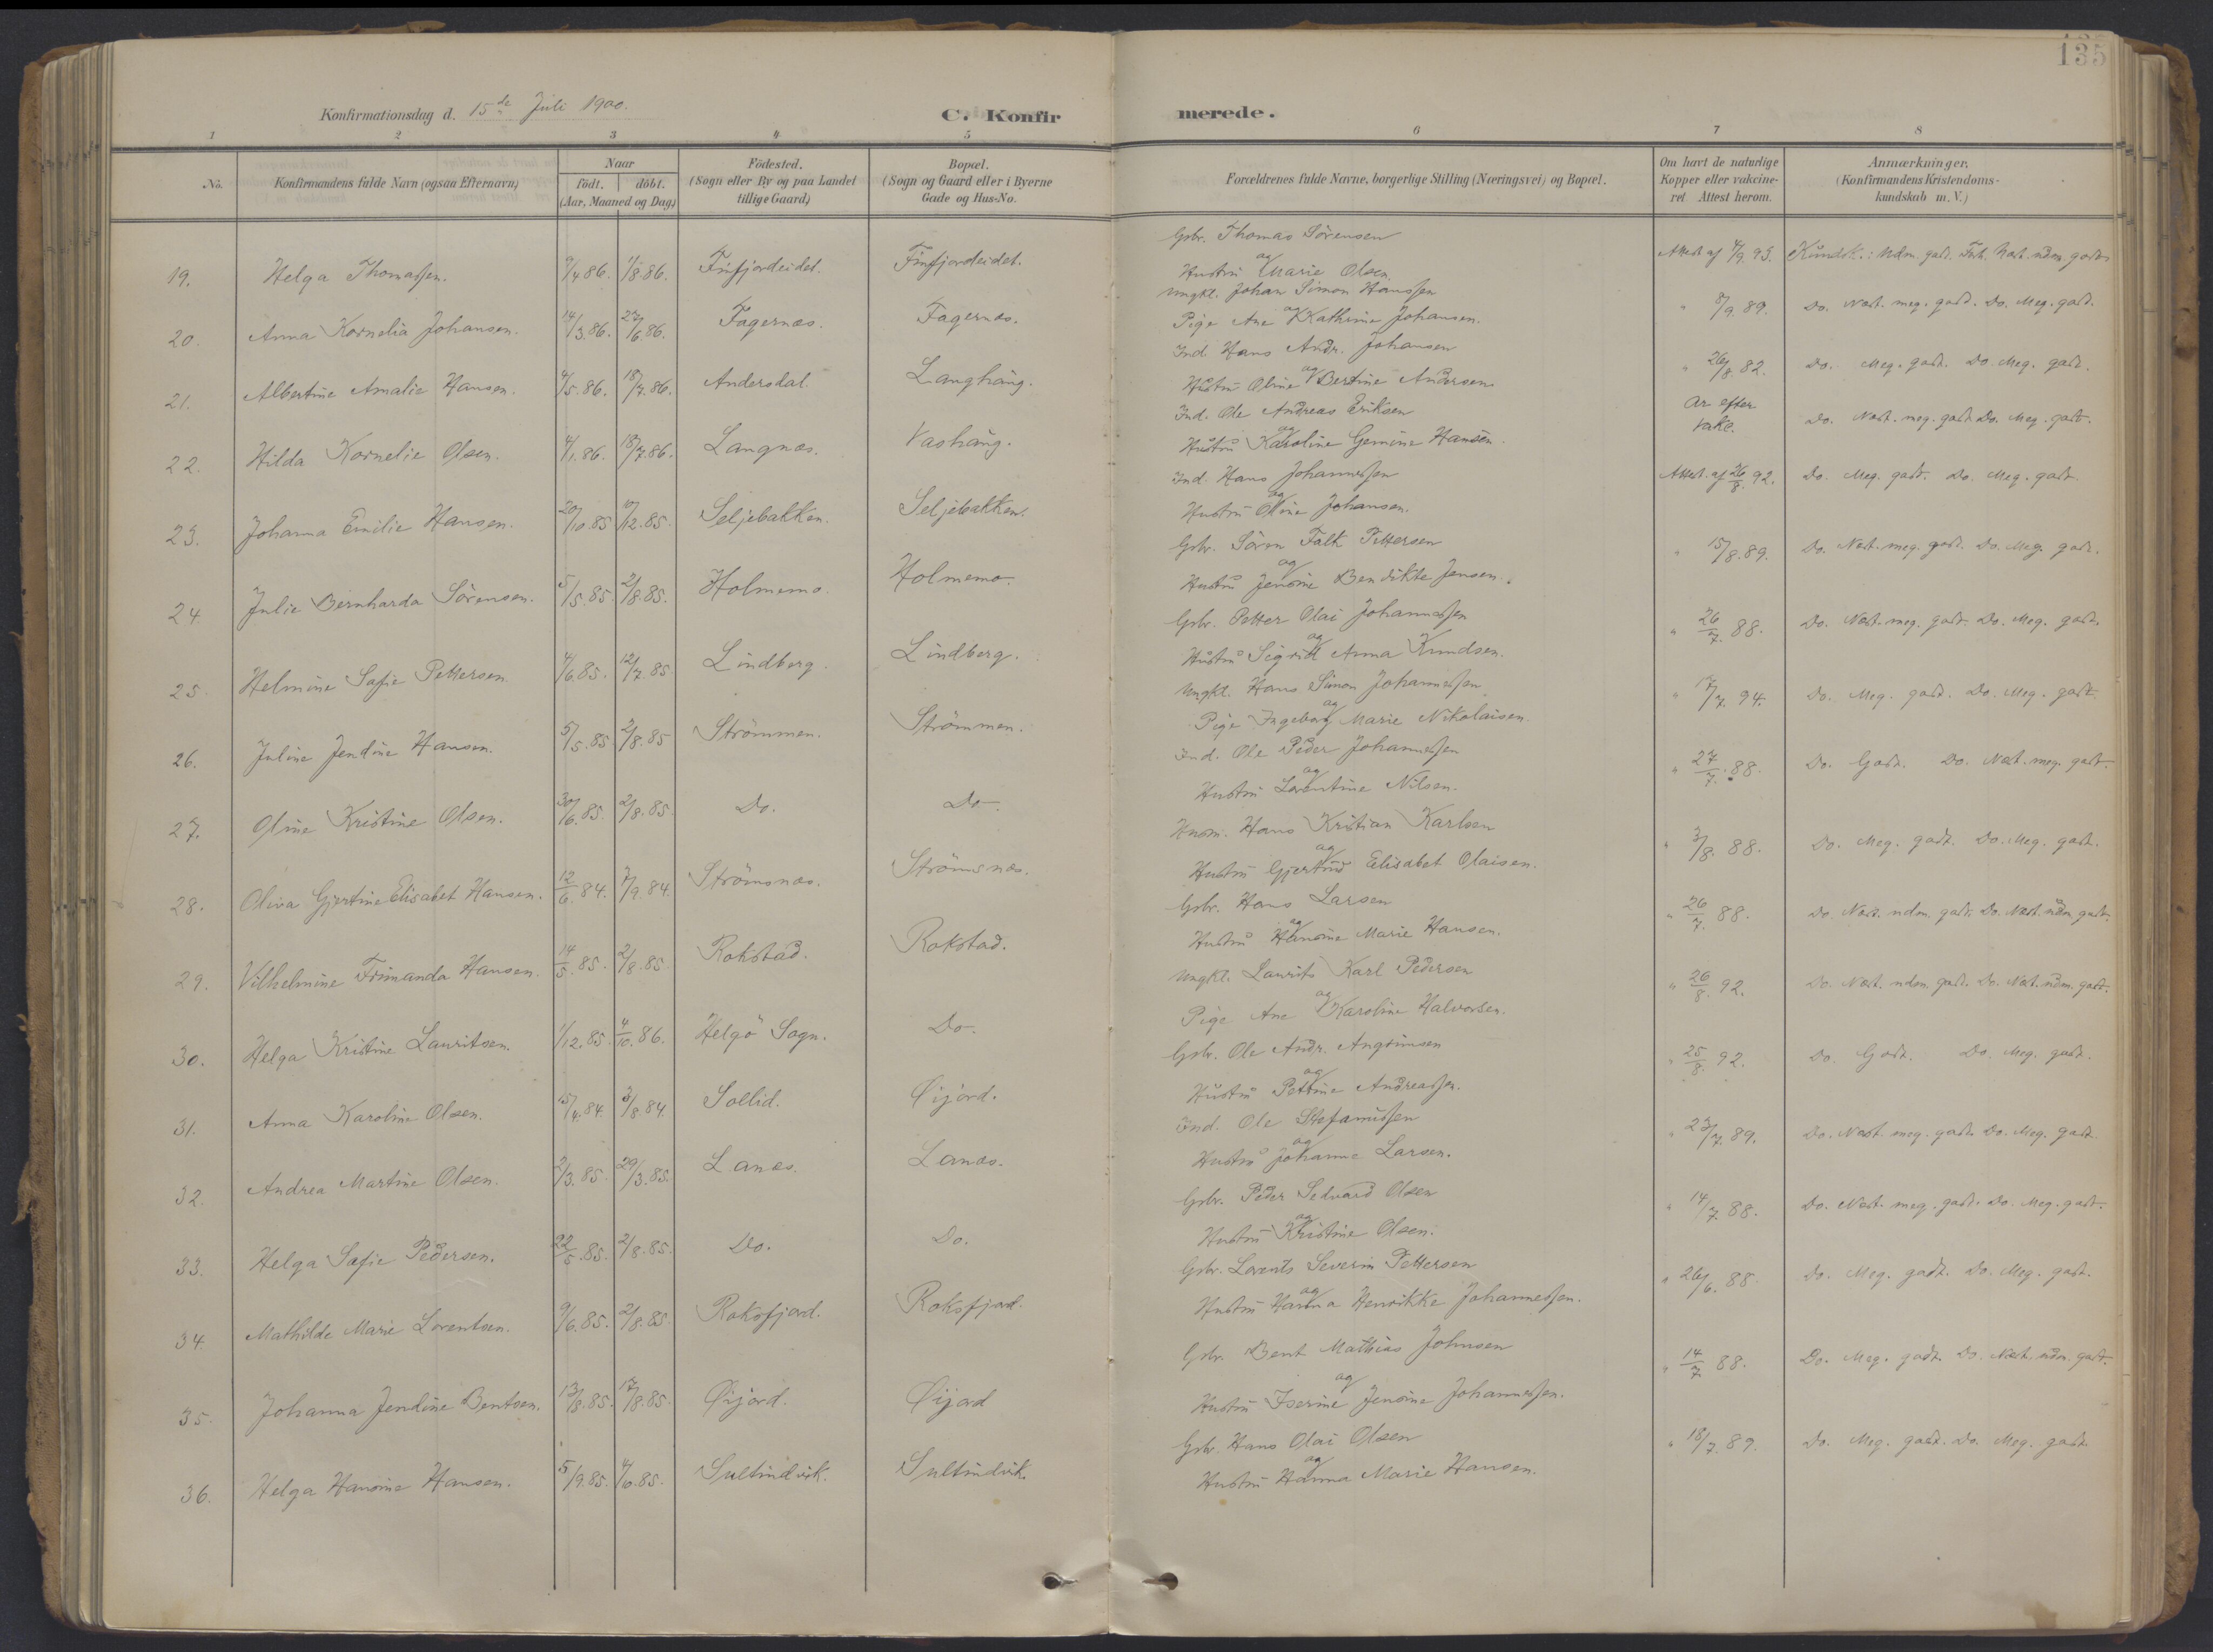 135
Konfirmationsdag d. 15de Juli 1900.
C. Konfirmerede.
1 2 3 4 5 6 7 8
No. Konfirmandens fulde Navn (ogsaa Efternavn) Naar födt. döbt. (Aar, Maaned og Dag.) Födested. (Sogn eller By og paa Landet tillige Gaard.) Bopæl. (Sogn og Gaard eller i Byerne Gade og Hus-No. Forældrenes fulde Navne, borgerlige Stilling (Næringsvei) og Bopæl. Om havt de naturlige Kopper eller vakcineret. Attest herom. Anmærkninger. (Konfirmandens Kristendomskundskab m. V.)
19. Helga Thomassen. 9/4.86. 1/8.86. Finfjordeidet. Finfjordeidet. Gbr. Thomas Sörensen og Hustru Marie Olsen. Attest af 4/9 93. Kundsk.: Ndm. godt. Flid. Næst. ndm. godt.
20. Anna Kornelia Johansen. 14/3.86. 27/6.86. Fagernæs. Fagernæs. Ungkl. Johan Simon Hanssen og Pige Ane Kathrine Johansen. " 8/9.89. Do. Næst. meg. godt. Do. Meg. godt.
21. Albertine Amalie Hansen. 4/5.86. 18/7.86. Andersdal. Langhaug. Ind. Hans Andr. Johansen og Hustru Oline Bertine Andersen. " 26/8.82. Do. Meg. godt. Do. Meg. godt.
22. Hilda Kornelie Olsen. 4/1.86. 18/7.86. Langnæs. Vashaug. Ind. Ole Andreas Eriksen og Hustru Karoline Gemine Hansen. Ar efter vakc. Do. Næst. meg. godt. Do. Meg. godt.
23. Johanna Emilie Hansen. 20/10.85 10/12.85. Seljebakken. Seljebakken. Ind. Hans Johannessen og Hustru Oline Johansen. Attest af 26/8.92. Do. Meg. godt. Do. Meg. godt.
24 Julie Bernharda Sörensen. 5/5.85. 2/8.85. Holmemo. Holmemo. Gbr. Sören Falk Pettersen og Hustru Jensine Bendikte Jensen. " 15/8.89. Do. Næst. meg. godt. Do. Meg. godt.
25. Helmine Sofie Pettersen 4/6.85. 12/7.85. Lindberg. Lindberg. Gbr. Petter Olai Johannessen og Hustru Sigrid Anna Knudsen. " 26/7.88. Do. Næst. meg. godt. Do. Meg. godt.
26. Juline Jendine Hansen. 5/5.85 2/8.85 Strömmen. Strömmen. Ungkl. Hans Simon Johannessen og Pige Ingeborg Marie Nikolaisen. " 17/7.94. Do. Meg. godt. Do. Meg. godt.
27. Oline Kristine Olsen. 30/6.85. 2/8.85. Do. Do. Ind. Ole Peder Johannessen og Hustru Lorentine Nilsen. " 27/7.88. Do. Godt. Do. Næst. meg. godt.
28. Oliva Gjertine Elisabet Hansen. 12/6.84. 7/9.84. Strömsnæs. Strömsnæs. Husm. Hans Kristian Karlsen og Hustru Gjertrud Elisabet Olaisen. " 3/8.88. Do. Meg. godt. Do. Meg. godt.
29. Vilhelmine Frimanda Hansen. 14/5.85. 2/8.85. Rokstad. Rokstad. Gbr. Hans Larsen og Hustru Hansine Marie Hansen. " 26/7.88. Do. Næst. ndm. godt. Do. Næst. ndm. godt.
30. Helga Kristine Lauritsen. 1/12.85. 4/10.86. Helgö Sogn. Do. Ungkl. Laurits Karl Pedersen og Pige Ane Karoline Halvorsen. " 26/8.92. Do. Næst. ndm. godt. Do. Næst. ndm. godt.
31. Anna Karoline Olsen. 15/4.84. 3/8.84. Sollid. Öijord. Gbr. Ole Andr. Angrimsen og Hustru Pettrine Andreassen. " 25/8.92. Do. Godt. Do. Meg. godt.
32. Andrea Martine Olsen. 2/3.85. 29/3.85. Lanæs. Lanæs. Ind. Ole Stefanussen og Hustru Johanne Larsen. " 23/7.89. Do. Næst. meg. godt. Do. Meg. godt.
33. Helga Sofie Pedersen. 22/5.85. 2/8.85. Do. Do. Gbr. Peder Sedvard Olsen og Hustru Kristine Olsen. " 14/7.88. Do. Næst. meg. godt. Do. Meg. godt.
34. Mathilde Marie Lorentsen. 9/6.85. 2/8.85. Roksfjord. Roksfjord. Gbr. Lorents Severin Pettersen og Hustru Hanna Henrikke Johannessen. " 26/6.88. Do. Meg. godt. Do. Meg. godt.
35. Johanna Jendine Bentsen. 13/8.85. 17/8.85. Öijord. Öijord Gbr. Bent Mathias Johnsen og Hustru Iserine Jensine Johannessen. " 14/7.88. Do. Meg. godt. Do. Næst. ndm. godt.
36. Helga Hansine Hansen. 5/9.85. 4/10.85. Sultindvik. Sultindvik. Gbr. Hans Olai Olsen og Hustru Hanna Marie Hansen. " 18/7.89. Do. Meg. godt. Do. Meg. godt.